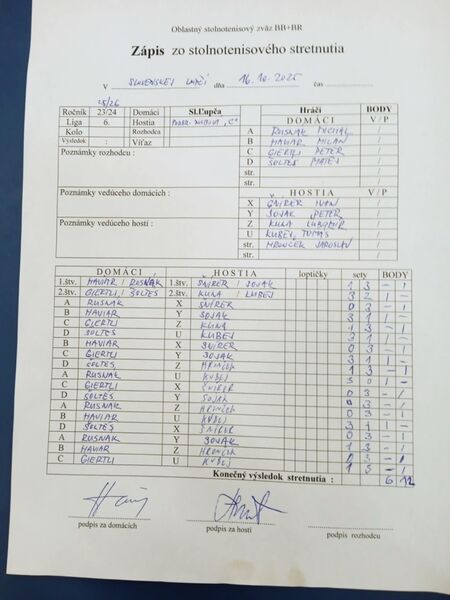 Oblastný stolnotenisový zväz BB+BR
Zápis zo stolnotenisového stretnutia
V SLOVENSKEJ ĽUPČI dňa 16.10.2025 čas
25/26
Ročník 23/24 Domáci SLĽupča
Liga 6. Hostia "C"
Kolo Rozhodca
Výsledok : Víťaz
Poznámky rozhodcu :
Poznámky vedúceho domácich :
Poznámky vedúceho hostí :
Hráči BODY
DOMÁCI V / P
A RUSNAK MICHAL /
B HAVIAR MILAN /
C GIERTLI PETER /
D ŠOLTES MATEJ /
str. /
str. /
HOSTIA V / P
X ŠNÍRER IVAN /
Y SOJAK PETER /
Z KUNA ĽUBOMÍR /
U KUBEJ TOMÁŠ /
str. HRONČEK JAROSLAV /
str. /
DOMÁCI HOSTIA loptičky sety BODY
1.štv. HAVIAR / RUSNAK 1.štv. ŠNIRER / SOJAK 1 3 - 1
2.štv. GIERTLI / ŠOLTES 2.štv. KUNA / KUBEJ 3 2 1 -
A RUSNAK X SNIRER 0 3 - 1
B HAVIAR Y SOJAK 3 1 1 -
C GIERTLI Z KUNA 1 3 - 1
D SOLTES U KUBEJ 3 1 1 -
B HAVIAR X SNIRER 0 3 - 1
C GIERTLI Y SOJAK 3 1 1 -
D SOLTES Z HRONČEK 1 3 - 1
A RUSNAK U KUBEJ 3 0 1 -
C GIERTLI X ŠNIRER 0 3 - 1
D SOLTES Y SOJAK 0 3 - 1
A RUSNAK Z HRONČEK 0 3 - 1
B HAVIAR U KUBEJ 0 3 - 1
D SOLTES X SNIRER 3 1 1 -
A RUSNAK Y SOJAK 1 3 - 1
B HAVIAR Z HRONCEK 0 3 - 1
C GIERTLI U KUBEJ 1 3 - 1
Konečný výsledok stretnutia : 6 12
podpis za domácich
podpis za hostí
podpis rozhodcu